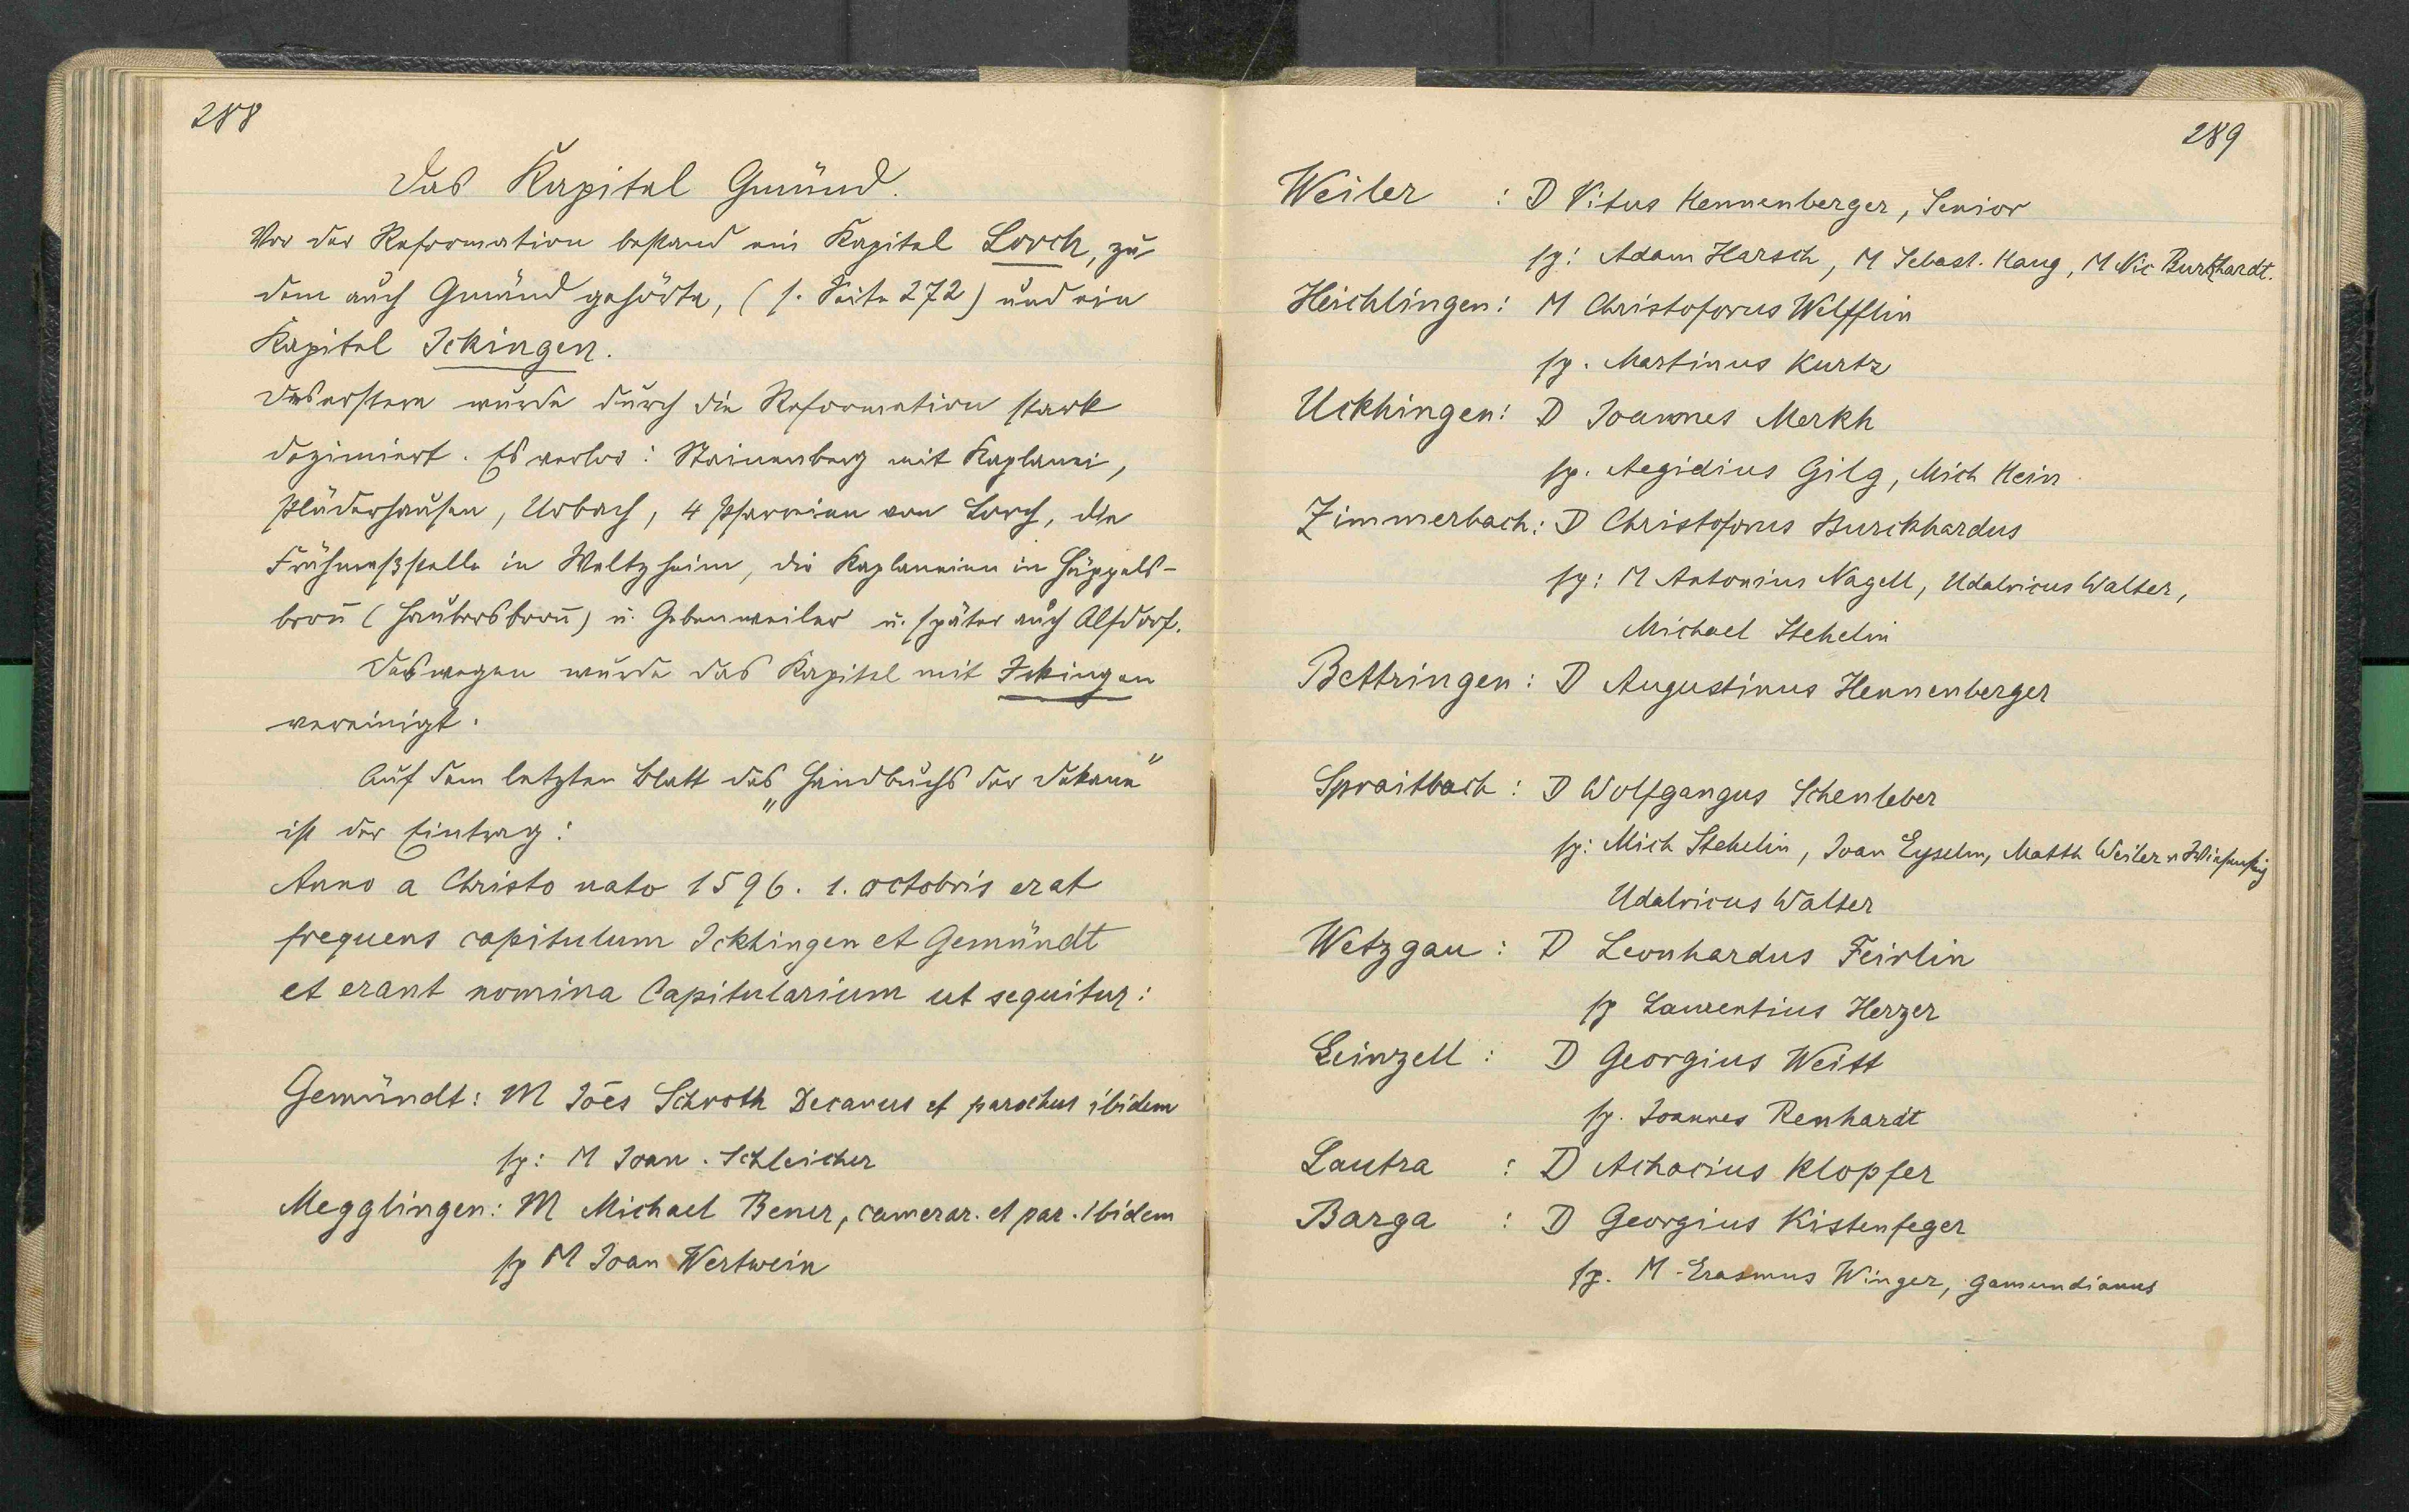 288
Das Kapitel Gmünd.
Vor der Reformation bestand ein Kapitel Lorch, zu
dem auch Gmünd gehörte, (s. Seite 272) und ein
Kapitel Ickingen.
Das erstere wurde durch die Reformation stark
dezimiert. Es verlor: Steinenberg mit Kaplanei,
Plüderhausen, Urbach, 4 Pfarreien von Lorch, die
Frühmeßstelle in Weltzheim, die Kaplaneien in Hüppels-
bron̄ (Haubersbron̄) u. Gebenweiler u. später auch Alfdorf.
Deswegen wurde das Kapitel mit Ickingen
vereinigt.
Auf dem letzten Blatt des „Handbuchs der Dekane"
ist der Eintrag:
Anno a Christo nato 1596. 1. octobris erat
frequens capitulum Ickhingen et Gemündt
et erant nomina Capitularium ut sequitur:
Gemündt: M Joēs Schroth Decanus et parochus ibidem
sp: M Joan. Schleicher
Megglingen: M Michael Bener, camerar. et par. ibidem
sp M Joan Wertwein
289
Weiler : D Vitus Hennenberger, Senior
sp: Adam Harsch, M Sebast. Haug, M Nic Burkhardt.
Heichlingen: M Christoforus Welfflin
sp. Martinus Kurtz
Uckhingen: D Joannes Merkh
sp. Aegidius Gilg, Mich Hein
Zimmerbach: D Christoforus Burckhardus
sp: M Antonius Nagell, Udalricus Walter,
Michael Stehelin
Bettringen: D Augustinus Hennenberger
Spraitbach: D Wolfgangus Schenleber
sp: Mich Stehelin, Joan Eyselin, Matth Weiler v
Udalricus Walter
Wetzgau: D Leonhardus Feirlin
sp Laurentius Herzer
Leinzell: D Georgius Weitt
sp. Joannes Renhardt
Lautra : D Achacius Klopfer
Barga : D Georgius Kistenfeger
sp. M. Erasmus Winger, gamundianus